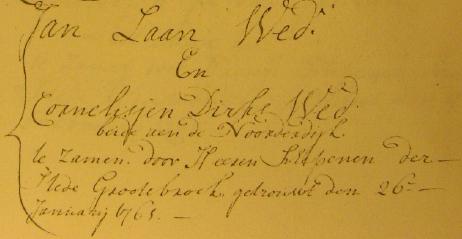 Jan Laan Wed:
En
Cornelisjen Dirks Wed.
beide aen de Noorderdijk
te zamen door Heeren Schepenen der
Stede Grootebroek getrouwt den 26e
Januarij 1761. —